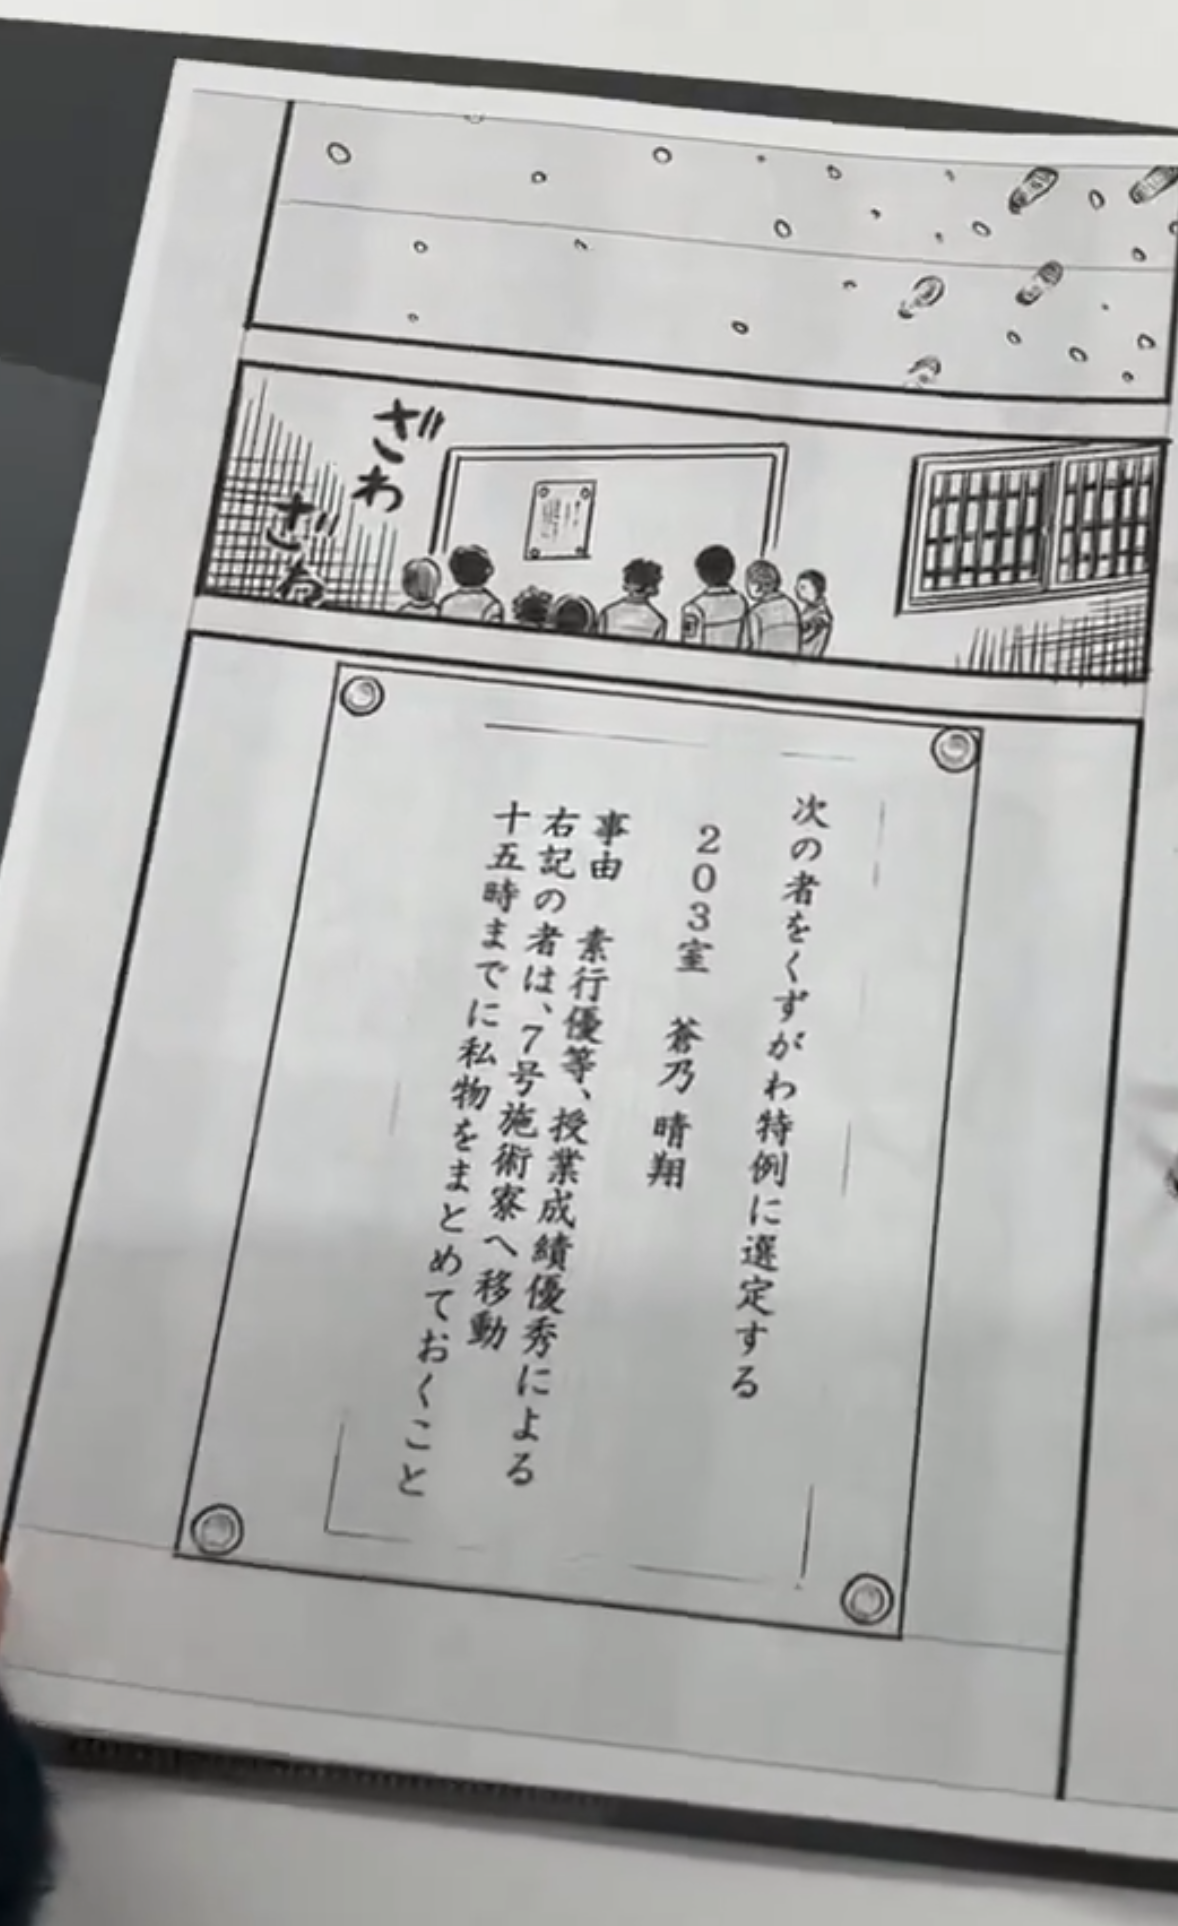 ざわ
ざわ
次の者をくずがわ特例に選定する
203室 蒼乃 晴翔
事由 素行優等、授業成績優秀による
右記の者は、7号施術寮へ移動
十五時までに私物をまとめておくこと